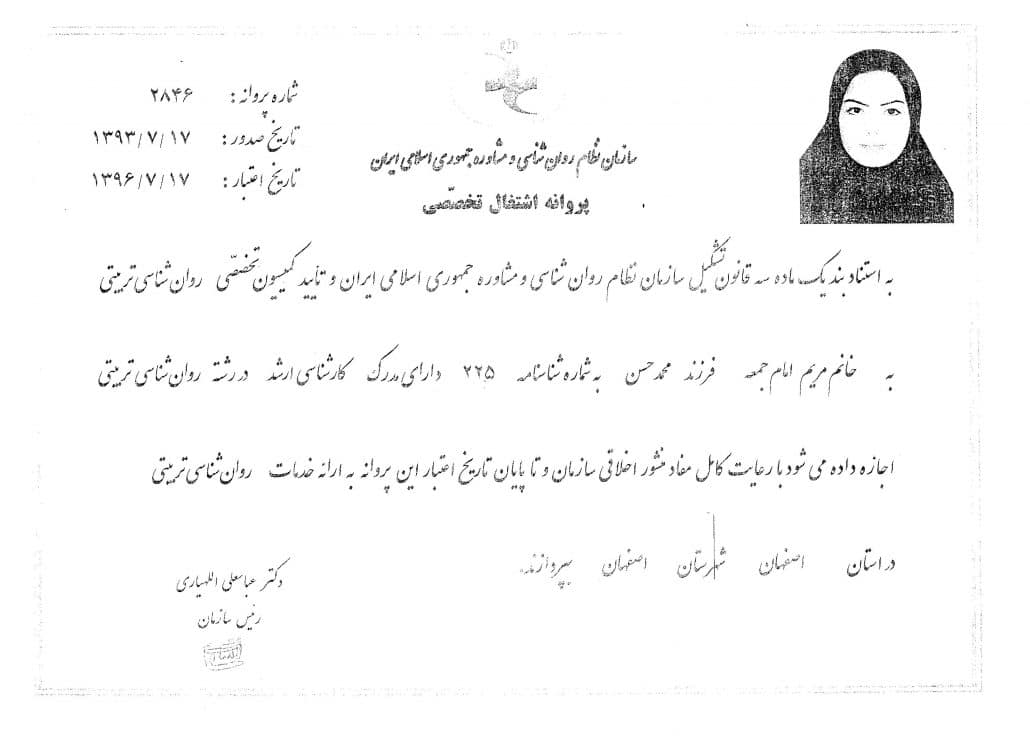 شماره پروانه: ۲۸۴۶
تاریخ صدور: ۱۳۹۳/۷/۱۷
تاریخ اعتبار: ۱۳۹۶/۷/۱۷
سازمان نظام روان شناسی و مشاوره جمهوری اسلامی ایران
پروانه اشتغال تخصّصی
به استناد بند یک ماده سه قانون تشکیل سازمان نظام روان شناسی و مشاوره جمهوری اسلامی ایران و تأیید کمیسیون تخصّصی روان شناسی تربیتی
به خانم مریم امام جمعه فرزند محمدحسن به شماره شناسنامه ۲۲۵ دارای مدرک کارشناسی ارشد در رشته روان شناسی تربیتی
اجازه داده می شود با رعایت کامل مفاد منشور اخلاقی سازمان و تا پایان تاریخ اعتبار این پروانه به ارائه خدمات روان شناسی تربیتی
در استان اصفهان شهرستان اصفهان بپردازند.
دکتر عباسعلی اللهیاری
رئیس سازمان